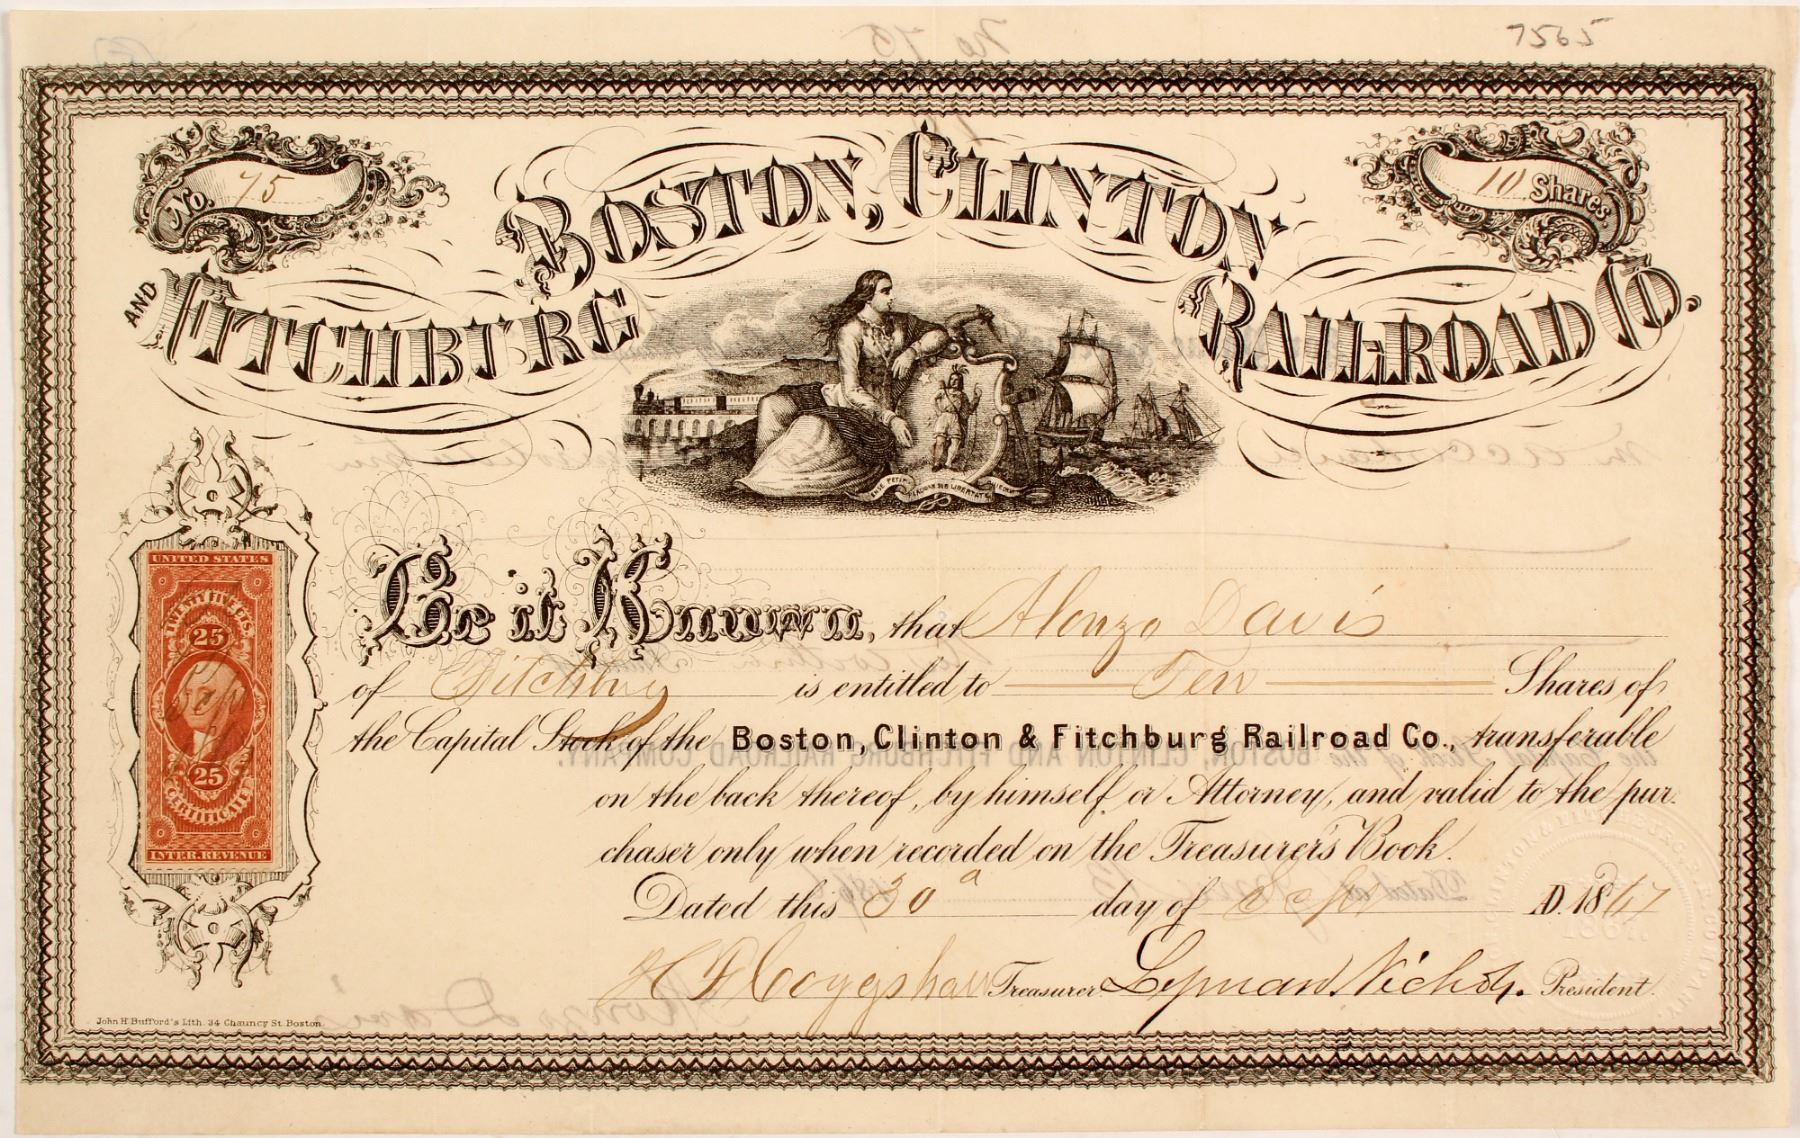 7565
No. 75
10 Shares
BOSTON, CLINTON
AND FITCHBURG RAILROAD CO.
UNITED STATES
TWENTY FIVE CTS.
25
25
CERTIFICATE
INTER. REVENUE
Be it Known, that Alonzo Davis
of Fitchburg is entitled to Ten Shares of
the Capital Stock of the Boston, Clinton & Fitchburg Railroad Co., transferable
on the back thereof, by himself or Attorney, and valid to the pur-
chaser only when recorded on the Treasurer's Book.
Dated this 30 day of Sept A.D. 18
Treasurer Lyman Nichols. President.
John H. Bufford's Lith. 34 Chauncy St. Boston.